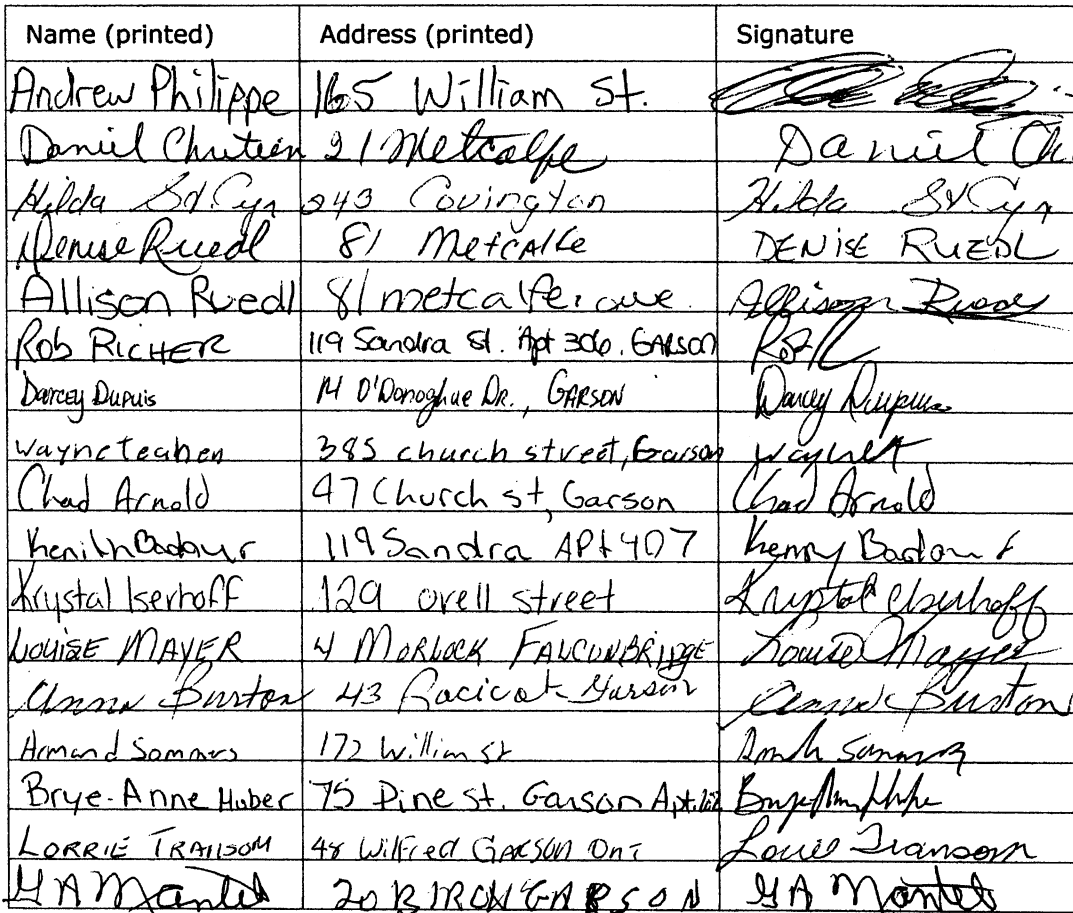 Name (printed) Address (printed) Signature
Andrew Philippe 165 William St.
Daniel Chretien 21 Metcalfe Daniel Ch
Hilda St. Cyr 243 Covington Hilda St Cyr
Denise Ruedl 81 Metcalfe DENISE RUEDL
Allison Ruedl 81 metcalfe ave. Allison Ruedl
Rob RICHER 119 Sandra St. Apt 306, GARSON
Darcey Dupuis 14 O'Donoghue DR., GARSON Darcey Dupuis
Wayne teahen 385 church street, Garson
Chad Arnold 47 Church st, Garson Chad Arnold
Badour 119 Sandra APt 407 Kenny Badour
Krystal Iserhoff 129 orell street Krystal Iserhoff
LOUISE MAYER 4 MORLOCK FALCONBRIDGE Louise Mayer
Anna Burton 43 Racicot Garson Anna Burton
Armand Sommers 172 William St
Brye-Anne Huber 75 Pine st. Garson Apt.
LORRIE TRANSOM 48 Wilfred GARSON Ont Lorrie Transom
G A Mantel 20 BIRON GARSON G A Mantel